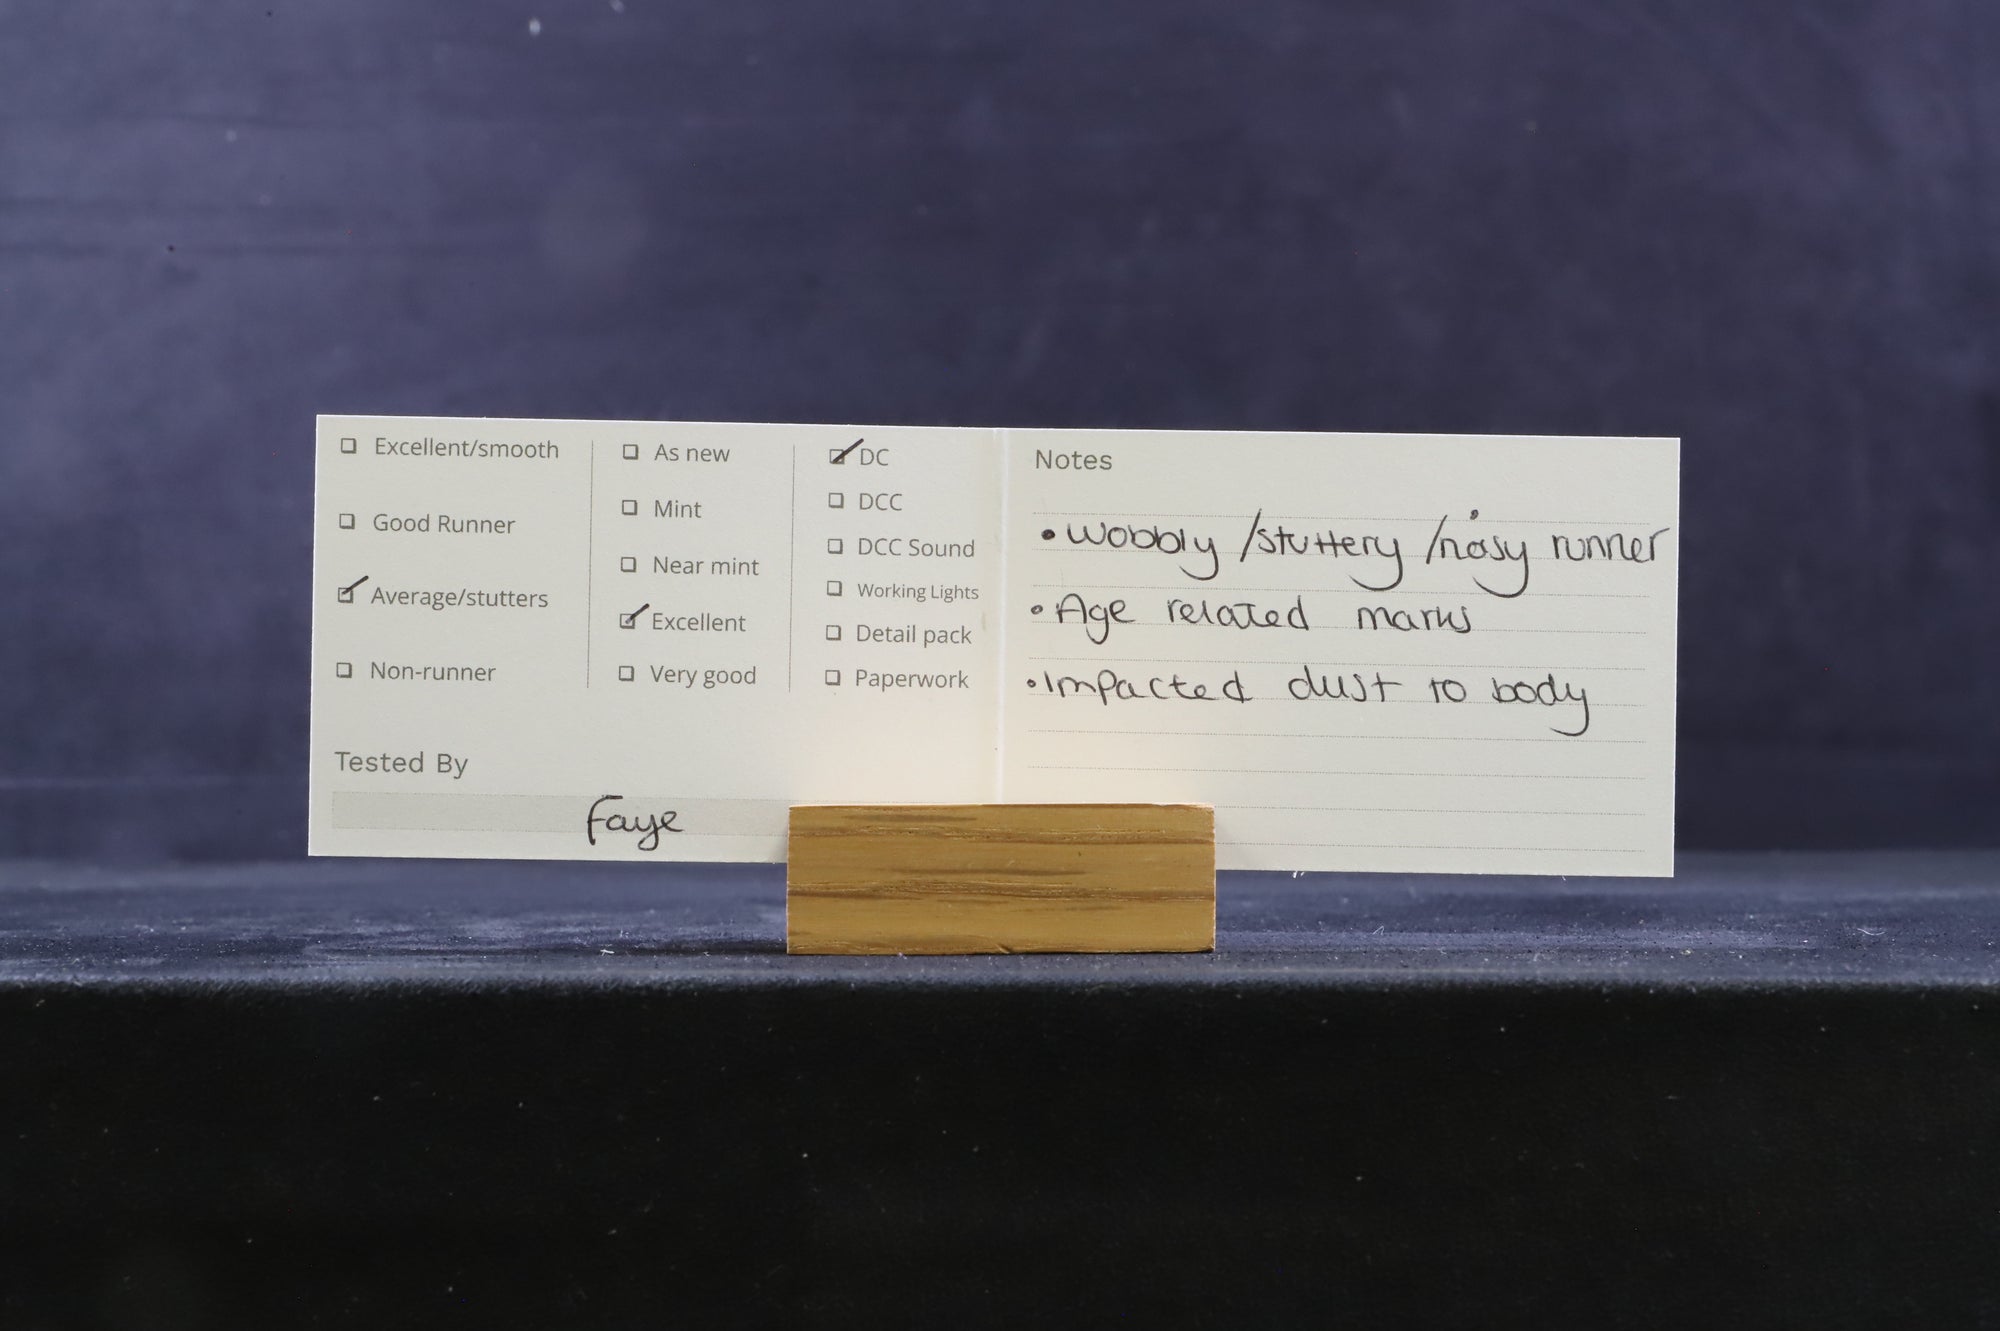 Excellent/smooth
Good Runner
Average/stutters
Non-runner
As new
Mint
Near mint
Excellent
Very good
DC
DCC
DCC Sound
Working Lights
Detail pack
Paperwork
Tested By
Faye
Notes
• Wobbly /stuttery /noisy runner
• Age related marks
• Impacted dust to body